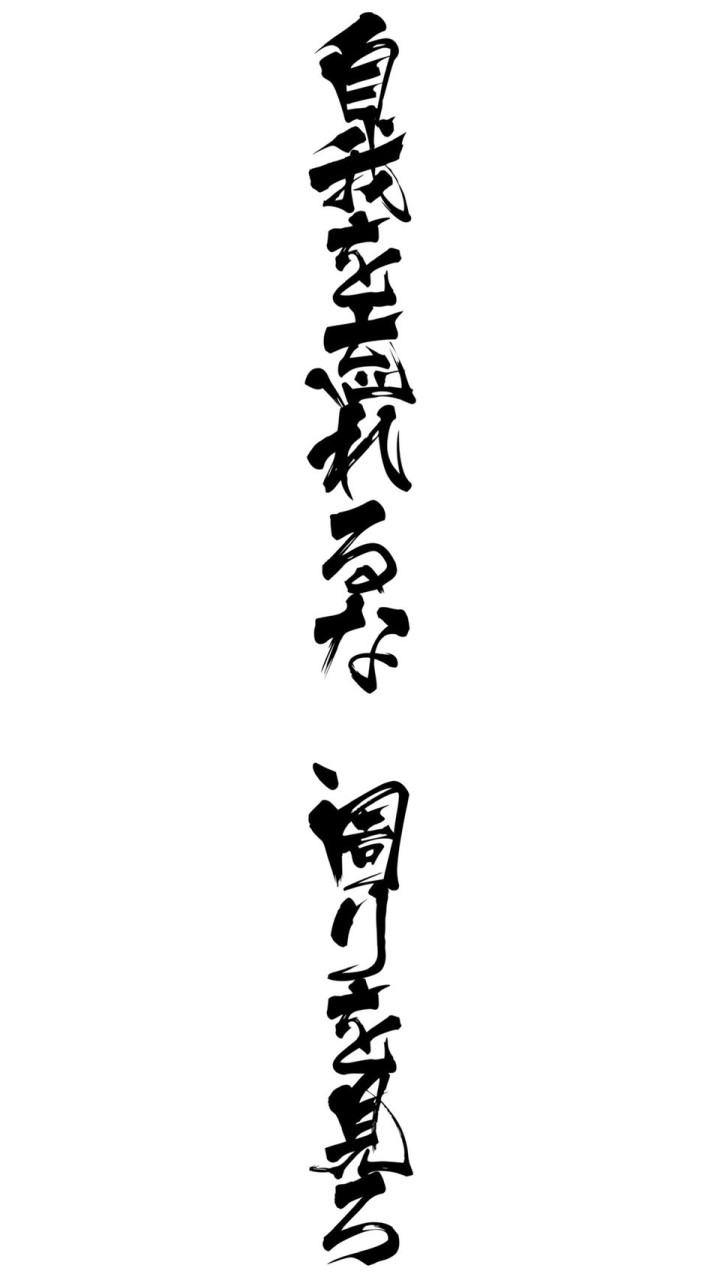 自我を溢れるな
周りを見ろ